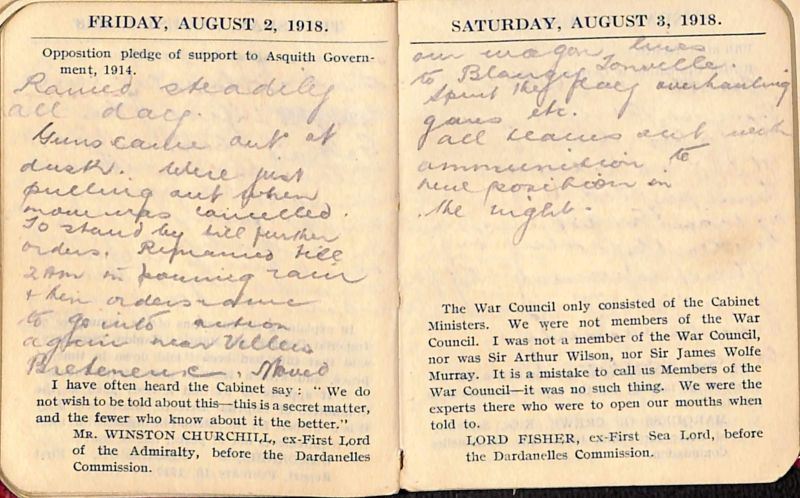 FRIDAY, AUGUST 2, 1918.
Opposition pledge of support to Asquith Govern-
ment, 1914.
Rained steadily
all day.
Guns came out at
dusk. Were just
pulling out when
move was cancelled.
To stand by till further
orders. Remained till
2 AM in pouring rain
& then orders came
to go into action
again near Villers
Bretoneux. Moved
I have often heard the Cabinet say: "We do
not wish to be told about this—this is a secret matter,
and the fewer who know about it the better."
Mr. WINSTON CHURCHILL, ex-First Lord
of the Admiralty, before the Dardanelles
Commission.
SATURDAY, AUGUST 3, 1918.
our wagon lines
to Blangy Tonville.
Spent the day overhauling
gears etc.
All teams out with
ammunition to
new position in
the night.
The War Council only consisted of the Cabinet
Ministers. We were not members of the War
Council. I was not a member of the War Council,
nor was Sir Arthur Wilson, nor Sir James Wolfe
Murray. It is a mistake to call us Members of the
War Council—it was no such thing. We were the
experts there who were to open our mouths when
told to.
LORD FISHER, ex-First Sea Lord, before
the Dardanelles Commission.